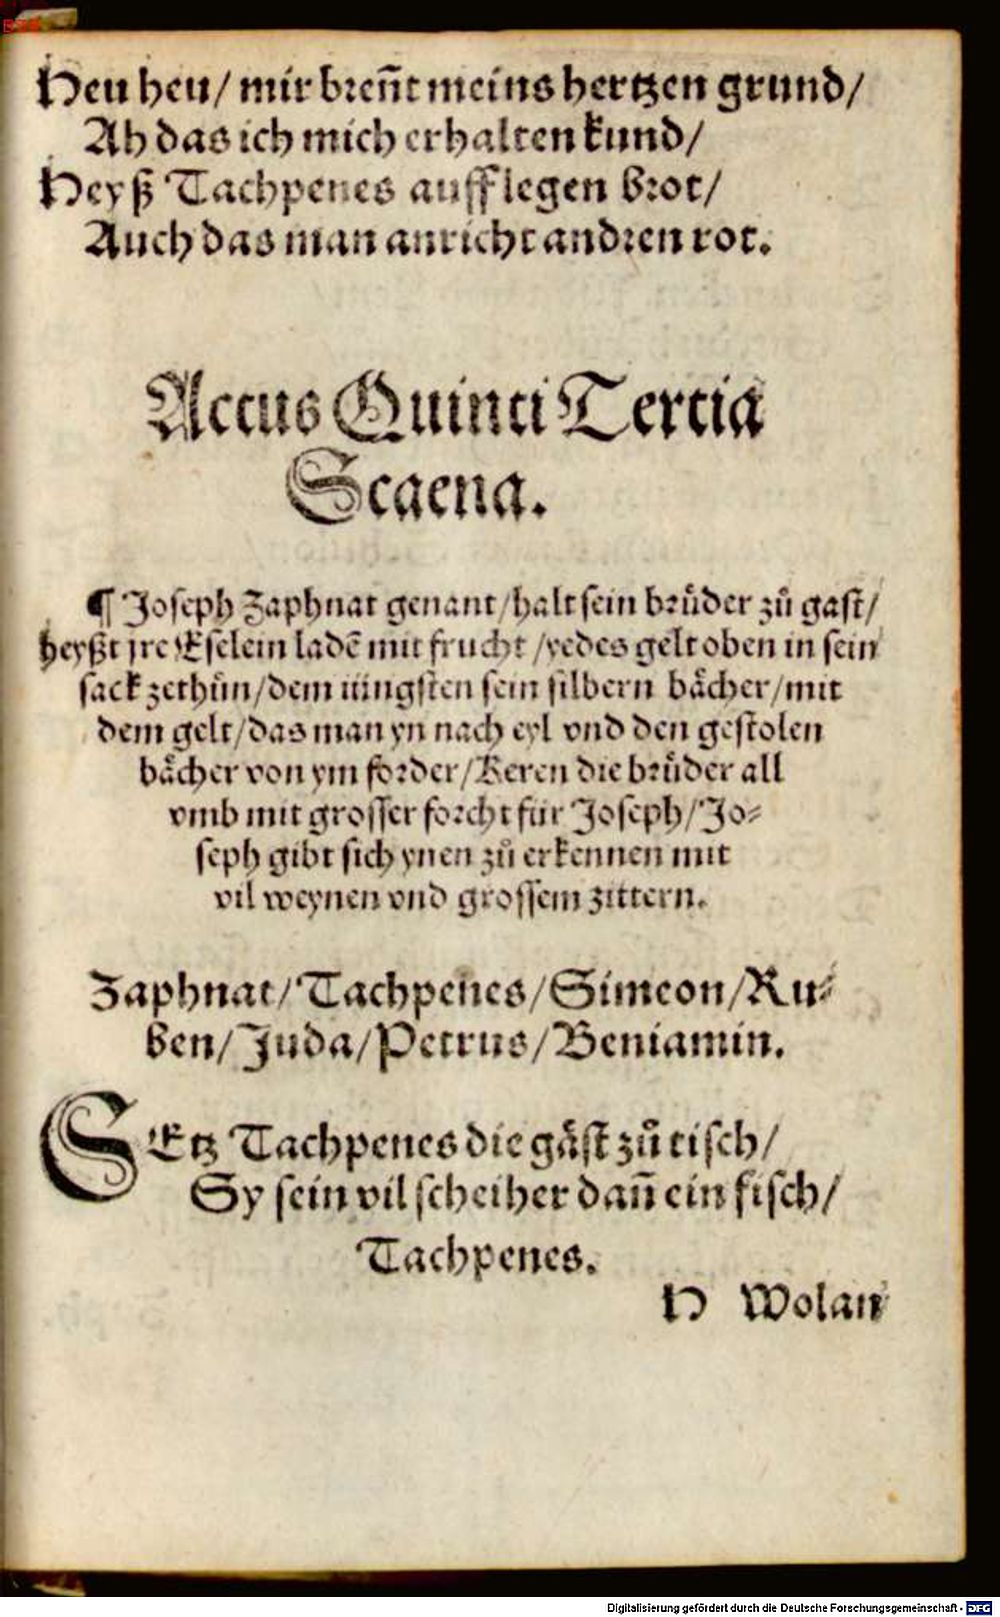 Heu heu/ mir breñt meins hertzen grund/
Ah das ich mich erhalten kund/
Heyß Tachpenes aufflegen brot/
Auch das man anricht andren rot.
Actus Quinti Tertia
Scaena.
¶ Joseph Zaphnat genant/halt sein brůder zů gast/
heyßt jre Eselein ladẽ mit frucht /yedes gelt oben in sein
sack zethůn/dem iüngsten sein silbern bächer/mit
dem gelt/das man yn nach eyl vnd den gestolen
bächer von ym forder/Keren die brůder all
vmb mit grosser forcht für Joseph/Jo⸗
seph gibt sich ynen zů erkennen mit
vil weynen vnd grossem zittern.
Zaphnat/Tachpenes/Simeon/Ru⸗
ben/Juda/Petrus/Beniamin.
SEtz Tachpenes die gäst zů tisch/
Sy sein vil scheiher dañ ein fisch/
Tachpenes.
H Wolan
Digitalisierung gefördert durch die Deutsche Forschungsgemeinschaft - DFG